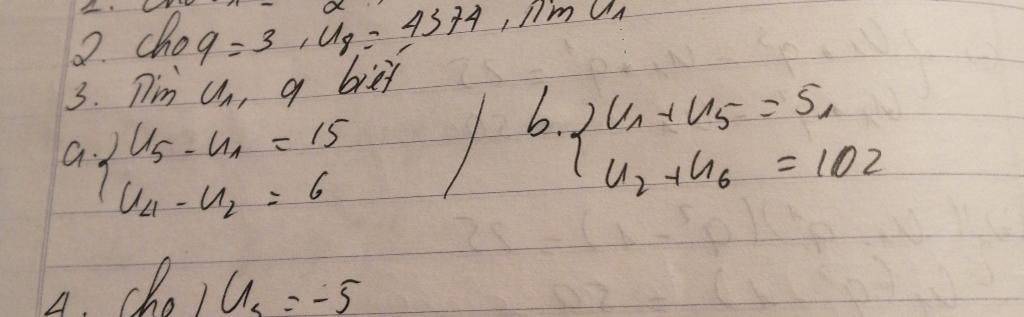 2. Cho q = 3, U8 = 4374, Tìm U1
3. Tìm U1, q biết
a. { U5 - U1 = 15 / b. { U1 + U5 = 51
U4 - U2 = 6 U2 + U6 = 102
4. Cho } = -5